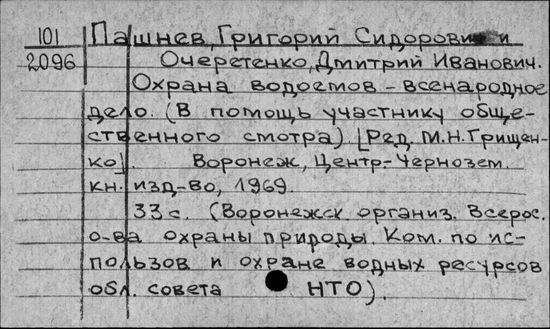 101 Пашнев, Григорий Сидорович и
2096 Очеретенко, Дмитрий Иванович.
Охрана водоемов - всенародное
дело. (В помощь участнику обще-
ственного смотра) [Ред. М.Н. Грищен-
ко]. Воронеж, Центр.-Чернозем.
кн. изд-во, 1969.
33 с. (Воронежск организ. Всерос.
о-ва охраны природы. Ком. по ис-
пользов и охране водных ресурсов
обл. совета НТО).